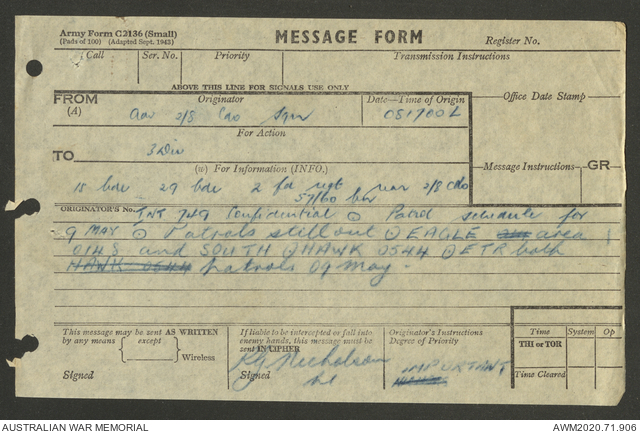 Army Form C2136 (Small)
(Pads of 100) (Adapted Sept. 1943)
MESSAGE FORM
Register No.
Call
Ser. No.
Priority
Transmission Instructions
ABOVE THIS LINE FOR SIGNALS USE ONLY
FROM
(A)
Originator
2/8 Cdo Sqn
Date—Time of Origin
051700L
Office Date Stamp
For Action
TO
3 Div
Message Instructions
GR
(w) For Information (INFO.)
15 bde 29 bde 2 fd regt 57/60 bn rear 2/8 Cdo
ORIGINATOR'S No.
INT 749 Confidential Patrol schedule for
9 MAY Patrols still out EAGLE area
0148 and SOUTH HAWK 0544 ETR both
HAWK 0544 patrols 09 May.
This message may be sent AS WRITTEN
by any means except
Wireless
Signed
If liable to be intercepted or fall into
enemy hands, this message must be
sent IN CIPHER
Nicholson
Signed
Originator's Instructions
Degree of Priority
IMPORTANT
Time
System
Op
THI or TOR
Time Cleared
AUSTRALIAN WAR MEMORIAL
AWM2020.71.906